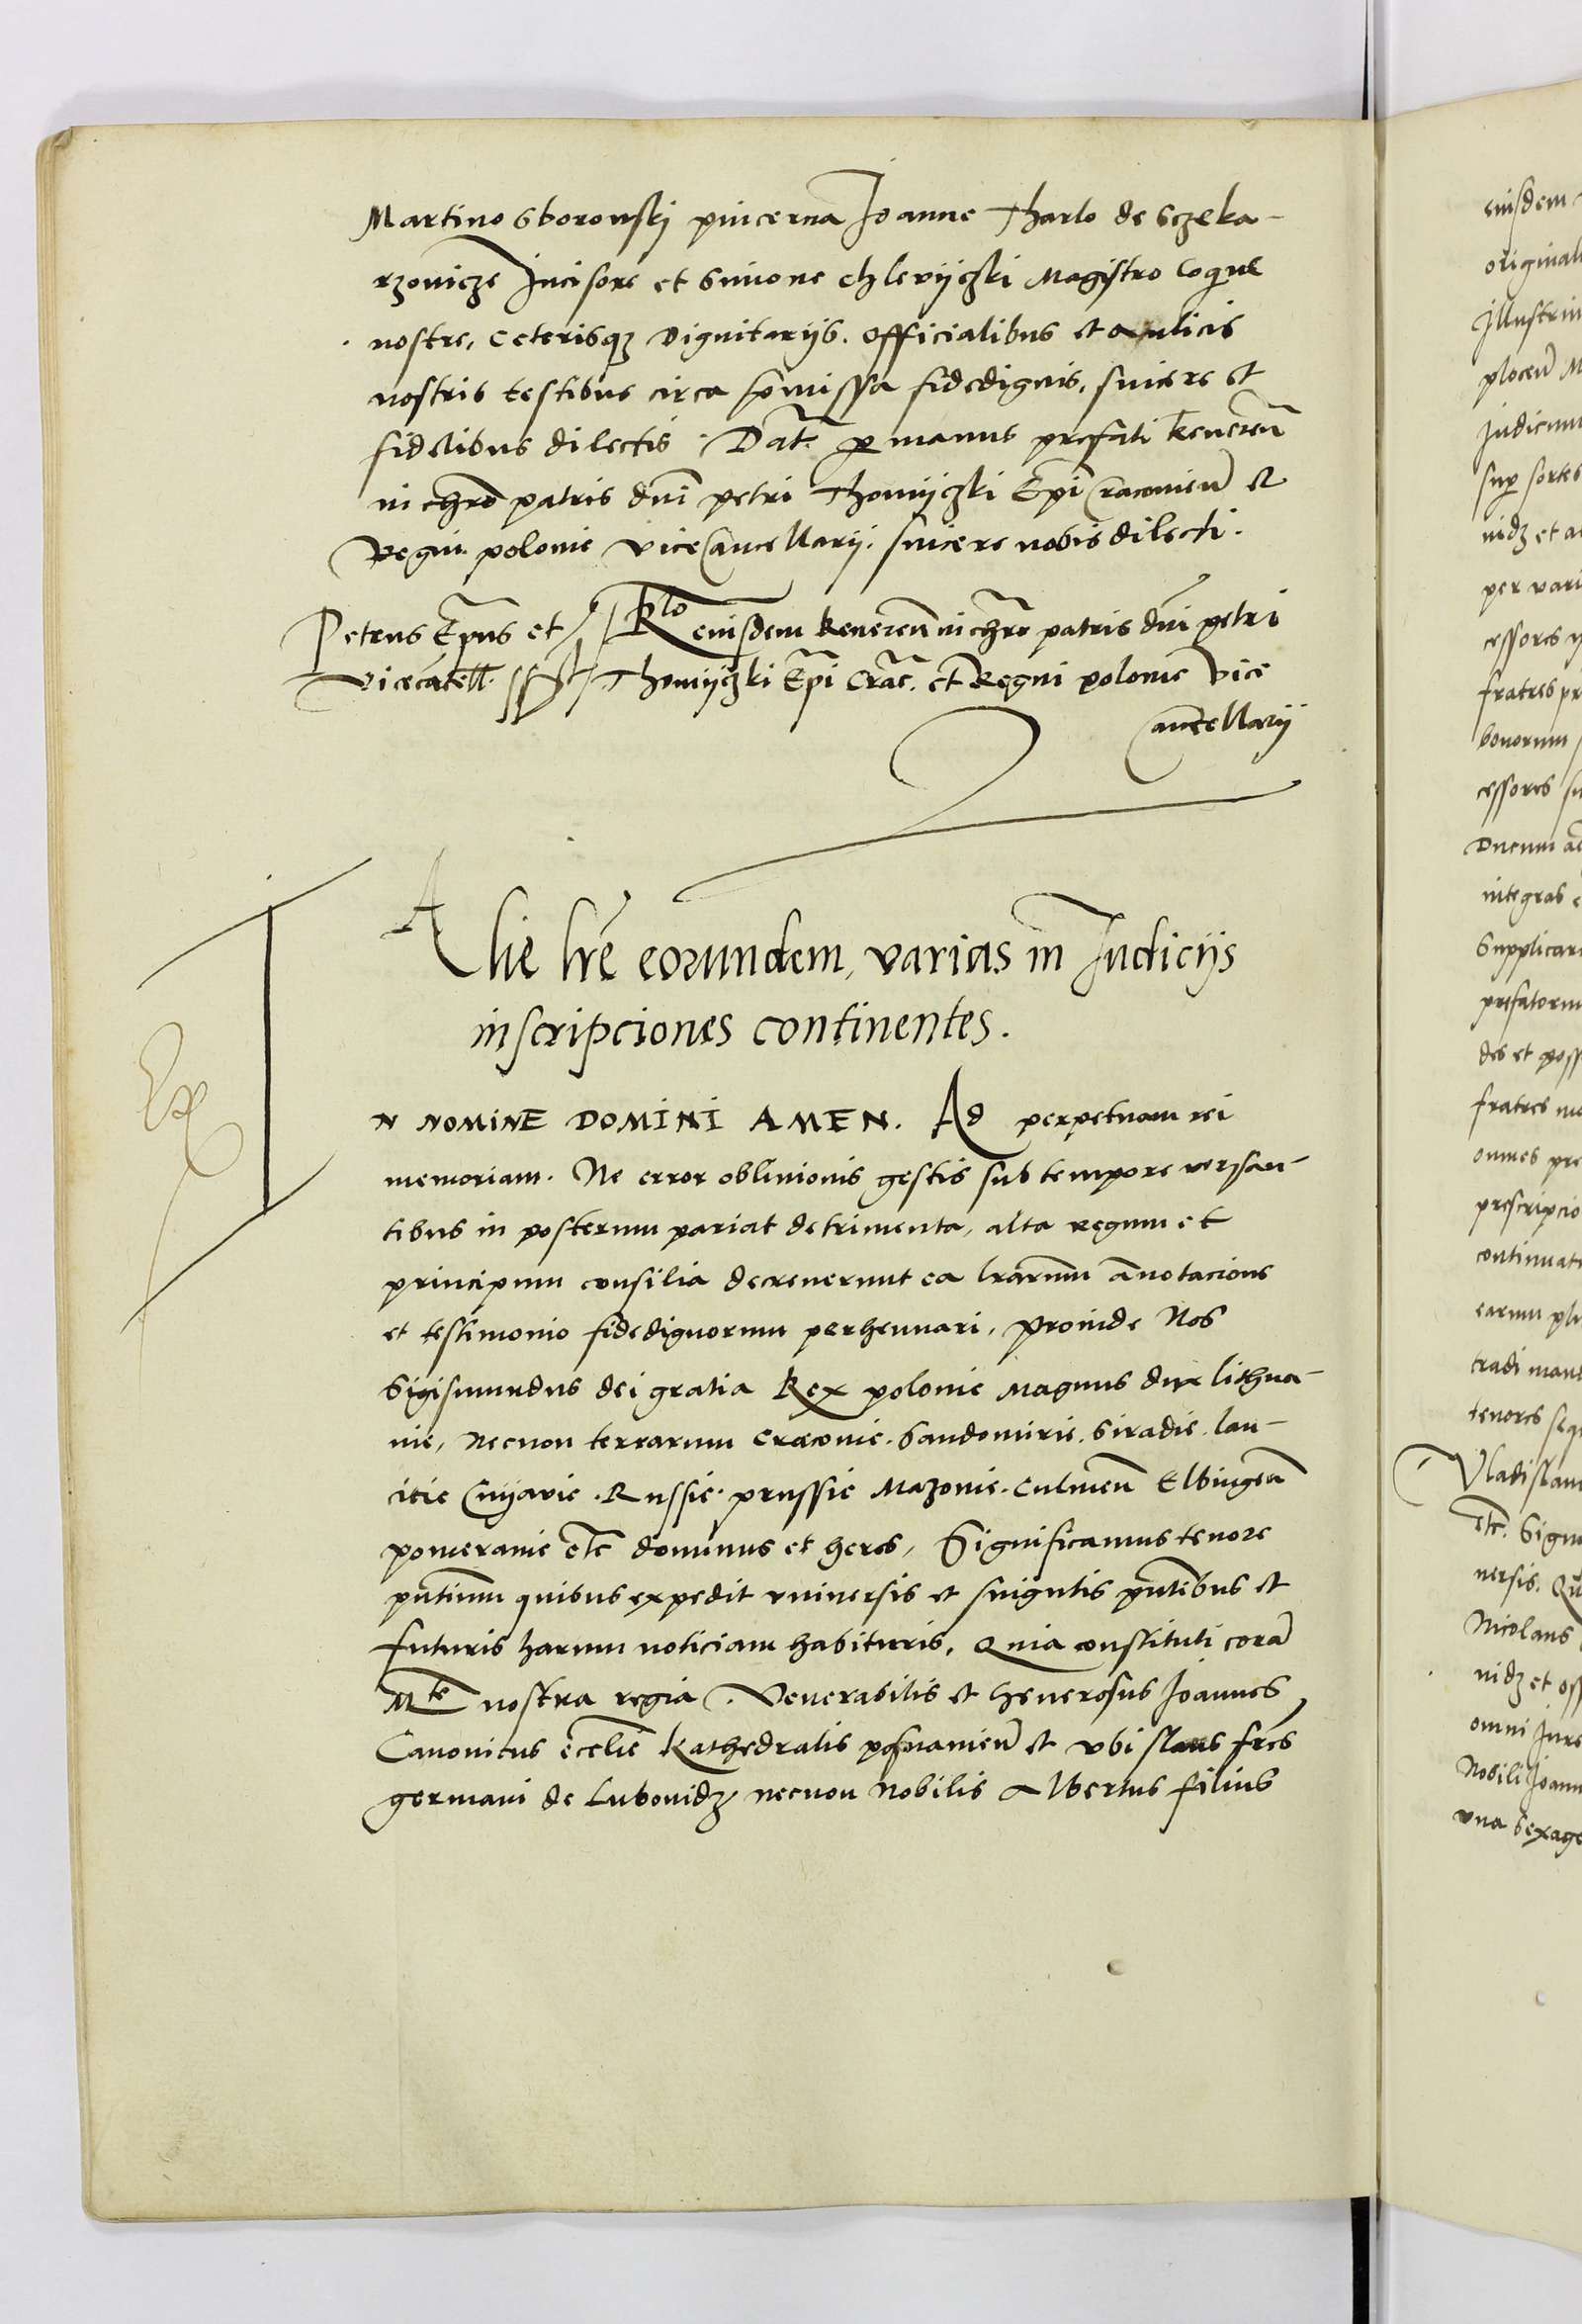 Martino Sborowski pincerna Joanne Tharlo de Sczeka-
rzovicze Incisore et Simone Chlevijczki Magistro Coquine
nostre, Ceterisqz Dignitarijs. Officialibus et aulicis
nostris testibus circa pmissa fidedignis, sincere et
fidelibus dilectis. Dat. p manus prefati Reveren
in chro patris dni petri Thomijczki Epi Cracovien et
Regni polonie vice Cancellarij. sincere nobis dilecti.
Petrus Epus et
Vicecacell. sspt
Rlo eiusdem Reveren in chro patris dni petri
Thomijczki Epi Crac. et Regni polonie Vice
Cancellarij
Alie lre eorundem, varias in Iudicijs
inscripciones continentes.
Ex
IN NOMINE DOMINI AMEN. Ad perpetuam rei
memoriam. Ne error oblivionis gestis sub tempore versan-
tibus in posterum pariat detrimenta, alta regum et
principum consilia decreverunt ea lrarum annotacione
et testimonio fidedignorum perhennari, proinde Nos
Sigismundus dei gratia Rex polonie Magnus dux lithua-
nie, Necnon terrarum Cracovie. Sandomirie. Siradie. lan-
citie Cuijavie. Russie. prussie Mazovie. Culmen Elbingen
pomeranie etc dominus et heres, Significamus tenore
pntium quibus expedit universis et singulis pntibus et
futuris harum noticiam habituris, Quia constituti cora
Mte nostra regia. Venerabilis et Henerosus Joannes
Canonicus ecclie Kathedralis posnanien et ubislaus fres
germani de Lubonidz necnon Nobilis Albertus filius
eiusdem
Illustriu
plocen M
sup sortes
nidz et
per vari
cessores
fratres pr
bonorum
cessores su
Ducum
integras
Supplicar
prefatorum
des et poss
fratres
omnes pre
prescripcio
continuat
earum
tradi mand
tenores sequ
Vladislaus
etc. Sign
versis. Qu
Nicolaus
nidz et
omni Jure
Nobili Joann
una Sexage